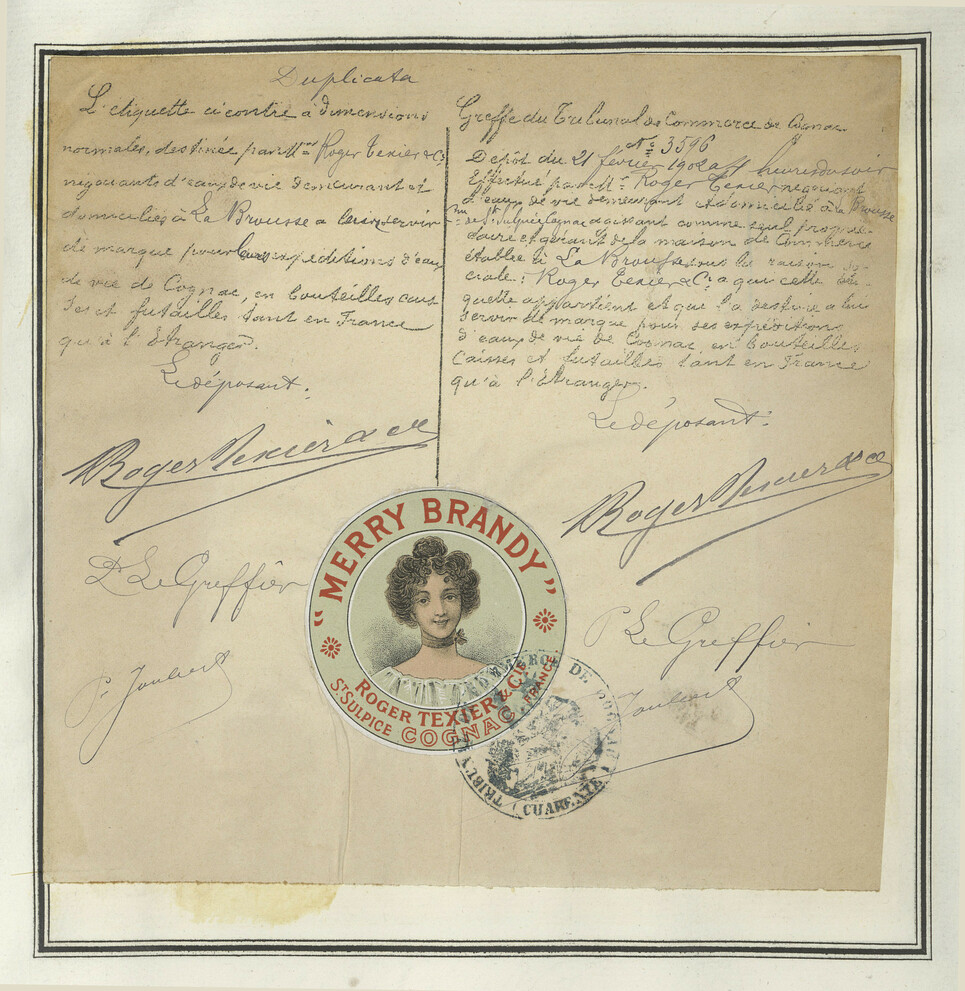 Duplicata
L'etiquette ci contre à dimensions
normales, destinée par Mrs Roger Texier & Cie
négociants d'eaux de vie demeurant et
domiciliés à La Brousse a leur servir
de marque pour leurs expeditions d'eaux
de vie de Cognac, en bouteilles cais
ses et futailles tant en France
qu'à l'Etranger.
Le déposant.
Roger Texier & Cie
Pr Le Greffier
P. Joubert
Greffe du Tribunal de Commerce de Cognac
No 3596
Depôt du 21 février 1902 à heures du soir
Effectué par Mr Roger Texier négociant
d'eaux de vie demeurant et domicilié à la Brousse
Cne de St Sulpice Cognac agissant comme seul proprié-
taire et gérant de la maison de Commerce
établie à La Brousse sous la raison so-
ciale: Roger Texier & Cie a qui cette éti-
quette appartient et qui l'a destinée a lui
servir de marque pour ses expéditions
d'eaux de vie de Cognac, en bouteilles
Caisses et futailles tant en France
qu'à l'Etranger.
Le déposant.
Roger Texier & Cie
P Le Greffier
Joubert
"MERRY BRANDY"
ROGER TEXIER & Cie
St SULPICE COGNAC FRANCE
TRIBUNAL DE COMMERCE DE COGNAC
(CHARENTE)